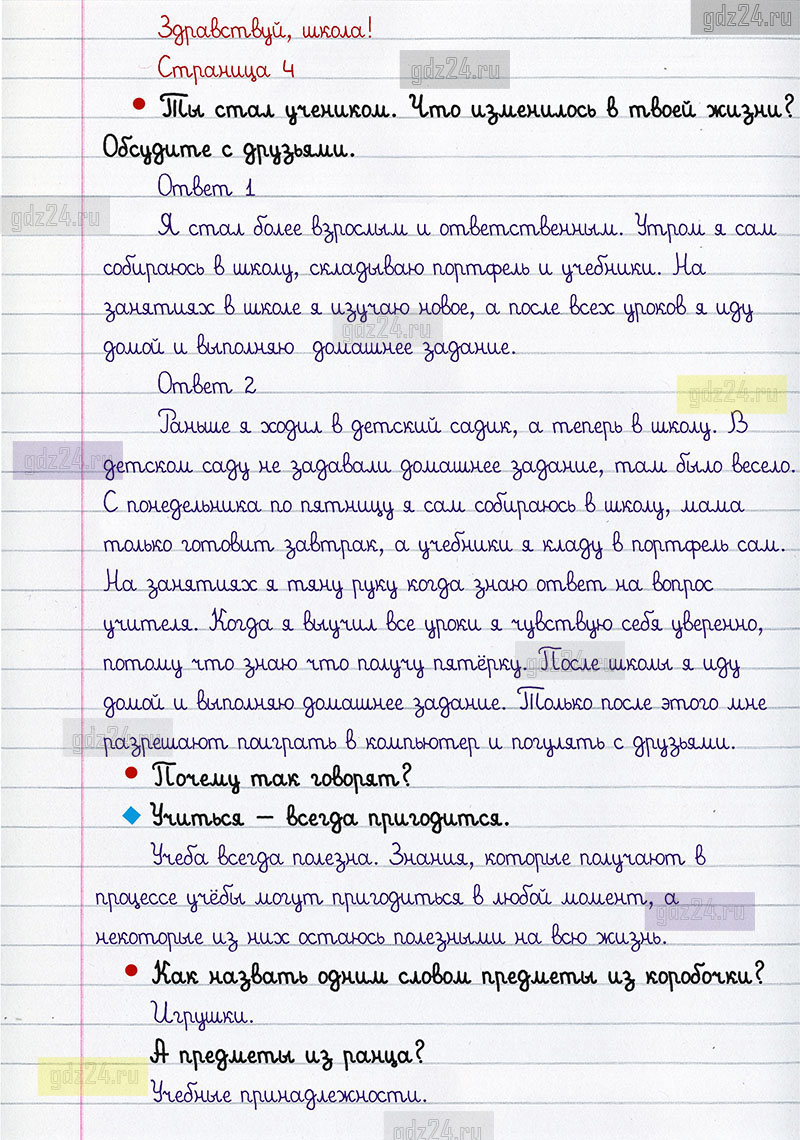 gdz24.ru
Здравствуй, школа!
Страница 4
gdz24.ru
• Ты стал учеником. Что изменилось в твоей жизни?
Обсудите с друзьями.
Ответ 1
gdz24.ru
Я стал более взрослым и ответственным. Утром я сам
собираюсь в школу, складываю портфель и учебники. На
занятиях в школе я изучаю новое, а после всех уроков я иду
gdz24.ru
домой и выполняю домашнее задание.
Ответ 2
gdz24.ru
Раньше я ходил в детский садик, а теперь в школу. В
gdz24.ru
детском саду не задавали домашнее задание, там было весело.
С понедельника по пятницу я сам собираюсь в школу, мама
только готовит завтрак, а учебники я кладу в портфель сам.
На занятиях я тяну руку когда знаю ответ на вопрос
учителя. Когда я выучил все уроки я чувствую себя уверенно,
потому что знаю что получу пятёрку. После школы я иду
gdz24.ru
домой и выполняю домашнее задание. Только после этого мне
gdz24.ru
разрешают поиграть в компьютер и погулять с друзьями.
• Почему так говорят?
Учиться — всегда пригодится.
Учеба всегда полезна. Знания, которые получают в
процессе учёбы могут пригодиться в любой момент, а
gdz24.ru
некоторые из них остаюсь полезными на всю жизнь.
• Как назвать одним словом предметы из коробочки?
Игрушки.
А предметы из ранца?
gdz24.ru
Учебные принадлежности.
gdz24.ru